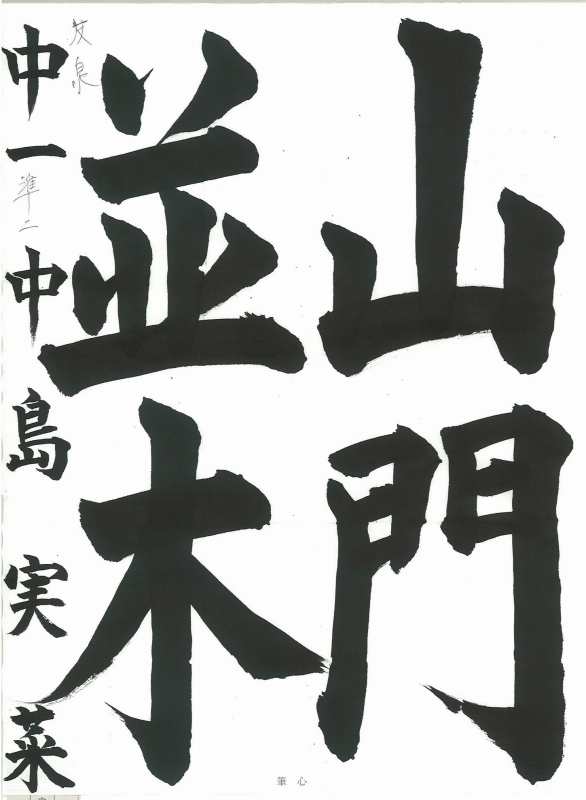 山門
並木
中一 中島実菜
準二
友泉
心筆